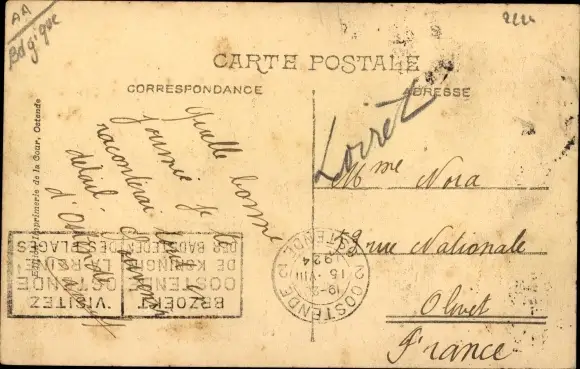 AA
Belgique
CARTE POSTALE
CORRESPONDANCE
ADRESSE
Imprimerie de la Cour, Ostende
Quelle bonne
journée je
raconterai
détail
Loiret
Mme Nora
rue Nationale
Olivet
France
OOSTENDE
15 VIII
1924
OSTENDE
BEZOEKT
OOSTENDE
DE KONINGIN
DER BADSTEDEN
VISITEZ
OSTENDE
LA REINE
DES PLAGES